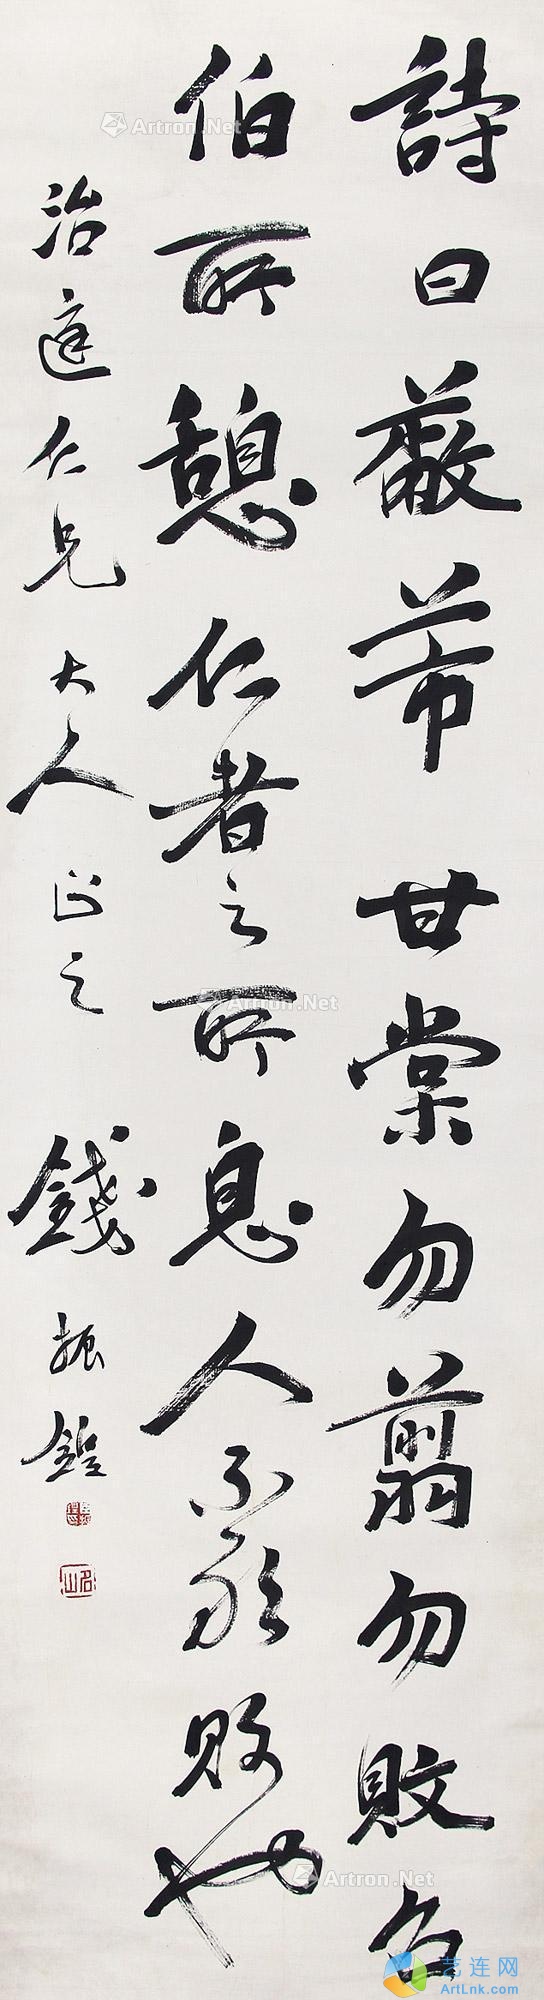 詩曰蔽芾甘棠勿翦勿敗召
伯所憩仁者之所息人不能敗也
治庭仁兄大人正之
錢振鍠
名山
Artron.Net
Artron.Net
Artron.Net
艺连网
ArtLnk.com